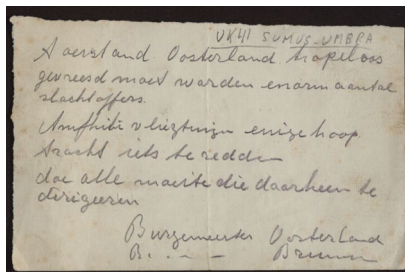 UK41 SUMUS UMBRA
Toestand Oosterland hopeloos
gevreesd moet worden enorm aantal
slachtoffers.
Amfhibi vliegtuigen enige hoop
tracht iets te redden
doe alle moeite die daarheen te
dirigeeren
Burgemeester Oosterland
B.